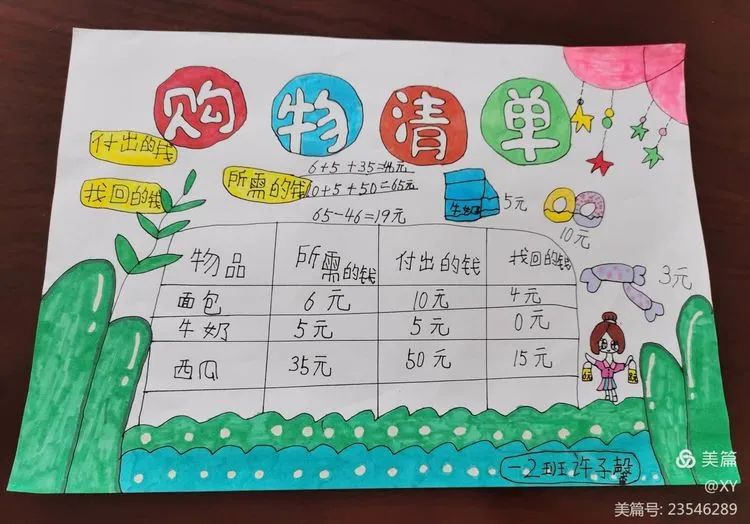 购物清单
付出的钱
找回的钱
所需的钱
6+5+35=46元
10+5+50=65元
65-46=19元
牛奶
5元
10元
3元
物品 所需的钱 付出的钱 找回的钱
面包 6元 10元 4元
牛奶 5元 5元 0元
西瓜 35元 50元 15元
一2班许子馨
美篇
@XY
美篇号: 23546289